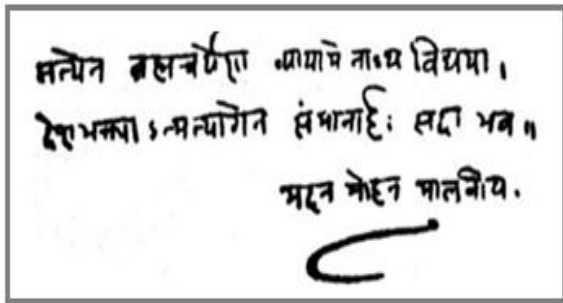 सत्येन ब्रह्मचर्येण व्यायामेनाथ विद्यया।
देशभक्त्याऽत्मत्यागेन संमानार्हः सदा भव॥
मदन मोहन मालवीय.